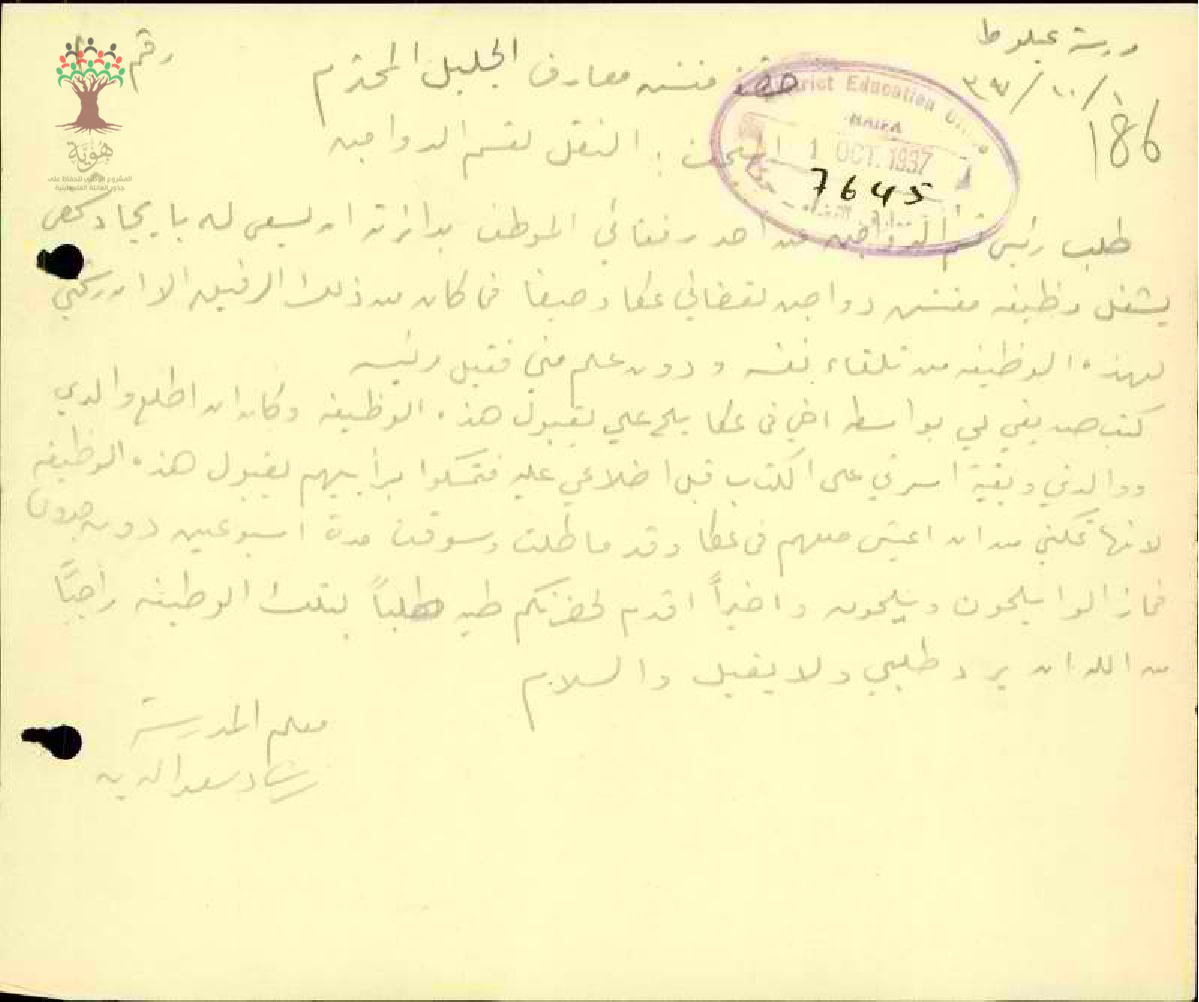 مدرسة عيلوط
رقم
٣٧/١٠/١
186
حضرة مفتش معارف الجليل المحترم
District Education
HAIFA
1 OCT. 1937
7645
هوية
المشروع الوطني للحفاظ على
جذور العائلة الفلسطينية
النقل لقسم الدواجن
طلب رئيس قسم الدواجن من احد رفقائي الموظف بدائرته ان يسعى له بايجاد شخص
يشغل وظيفة مفتش دواجن لقضائي عكا وحيفا فما كان من ذلك الرفيق الا ان رشحني
لهذه الوظيفة من تلقاء نفسه و دون علم مني فقبل رئيسه
كتب صديقي لي بواسطة اخي في عكا يلح علي بقبول هذه الوظيفة وكان ان اطلع والدي
ووالدتي وبقية اسرتي على الكتاب قبل اطلاعي عليه فتمسكوا برأييهم بقبول هذه الوظيفة
لانها تمكنني من ان اعيش معهم في عكا وقد ماطلت وسوفت مدة اسبوعين دون جدوى
فما زالوا يلحون ويلحون واخيراً اقدم لحضرتكم طيه طلباً لتلك الوظيفة راجياً
من الله ان يرد طلبي ولا يقبل والسلام
معلم المدرسة
رشاد سعد الدين